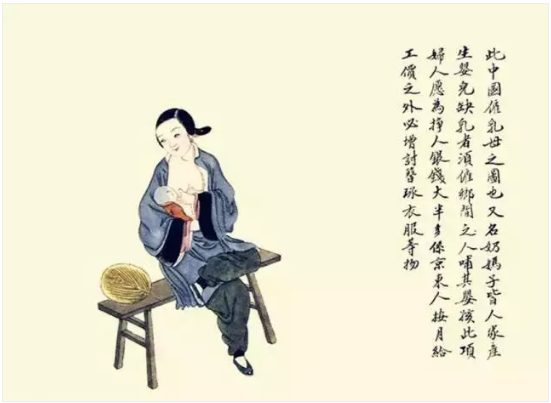 此中國雇乳母之圖也又名奶媽子皆人家產
生嬰兒缺乳者須雇鄉間之人哺其嬰孩此項
婦人愿為掙人銀錢大半多係京東人按月給
工價之外必增討簪珥衣服等物